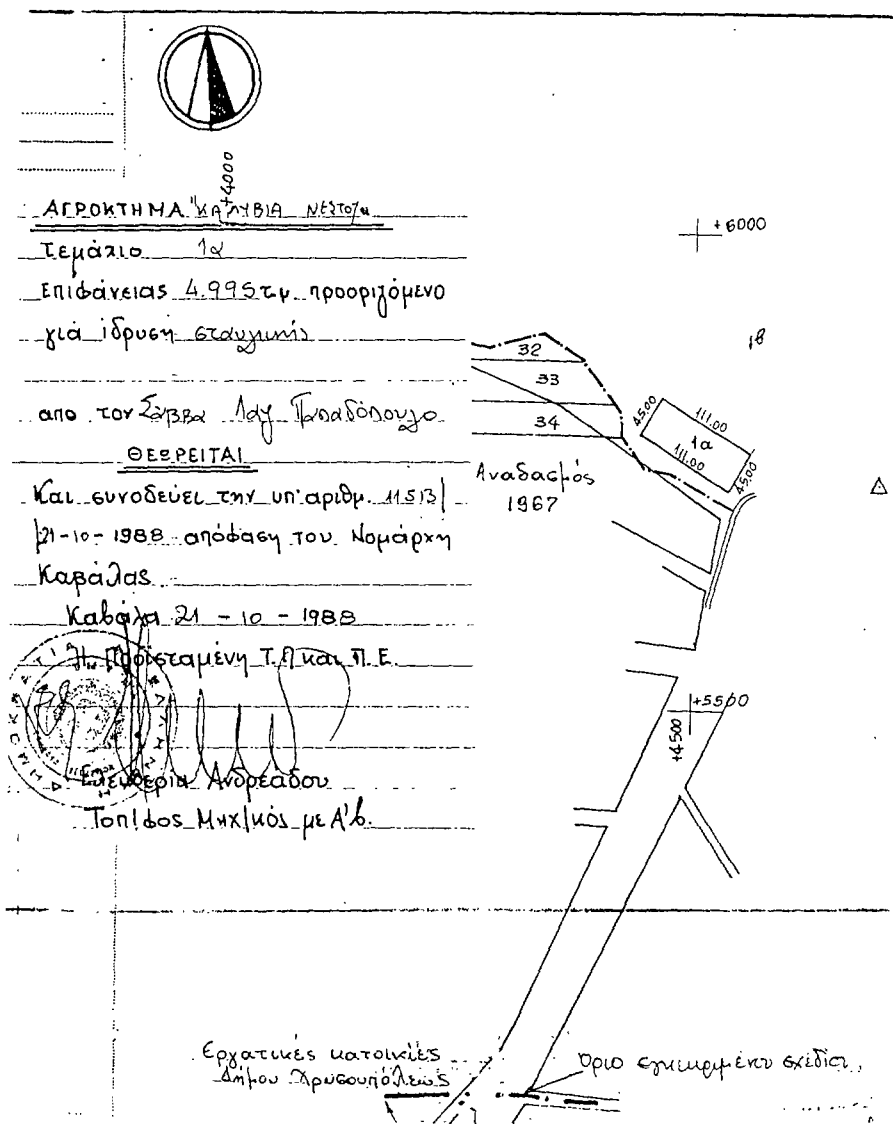 +4000
ΑΓΡΟΚΤΗΜΑ "ΚΑΛΥΒΙΑ ΝΕΣΤΟΥ"
Τεμάχιο 1α
Επιφάνειας 4.995 τ.μ. προοριζόμενο
γιά ίδρυση σταυλικής
από τον Σάββα Λαζ Παπαδόπουλο
ΘΕΩΡΕΙΤΑΙ
Και συνοδεύει την υπ' αριθμ. 11513/
21-10-1988 απόφαση του Νομάρχη
Καβάλας
Καβάλα 21-10-1988
Η Προϊσταμένη Τ.Π και Π.Ε.
Ελευθερία Ανδρεάδου
Τοπ/φος Μηχ/κός με Α'β.
+6000
1β
32
33
34
45.00
111.00
1α
111.00
45.00
Αναδασμός
1967
+5500
+4500
Εργατικές κατοικίες
Δήμου Χρυσουπόλεως
Όριο εγκεκριμένου σχεδίου